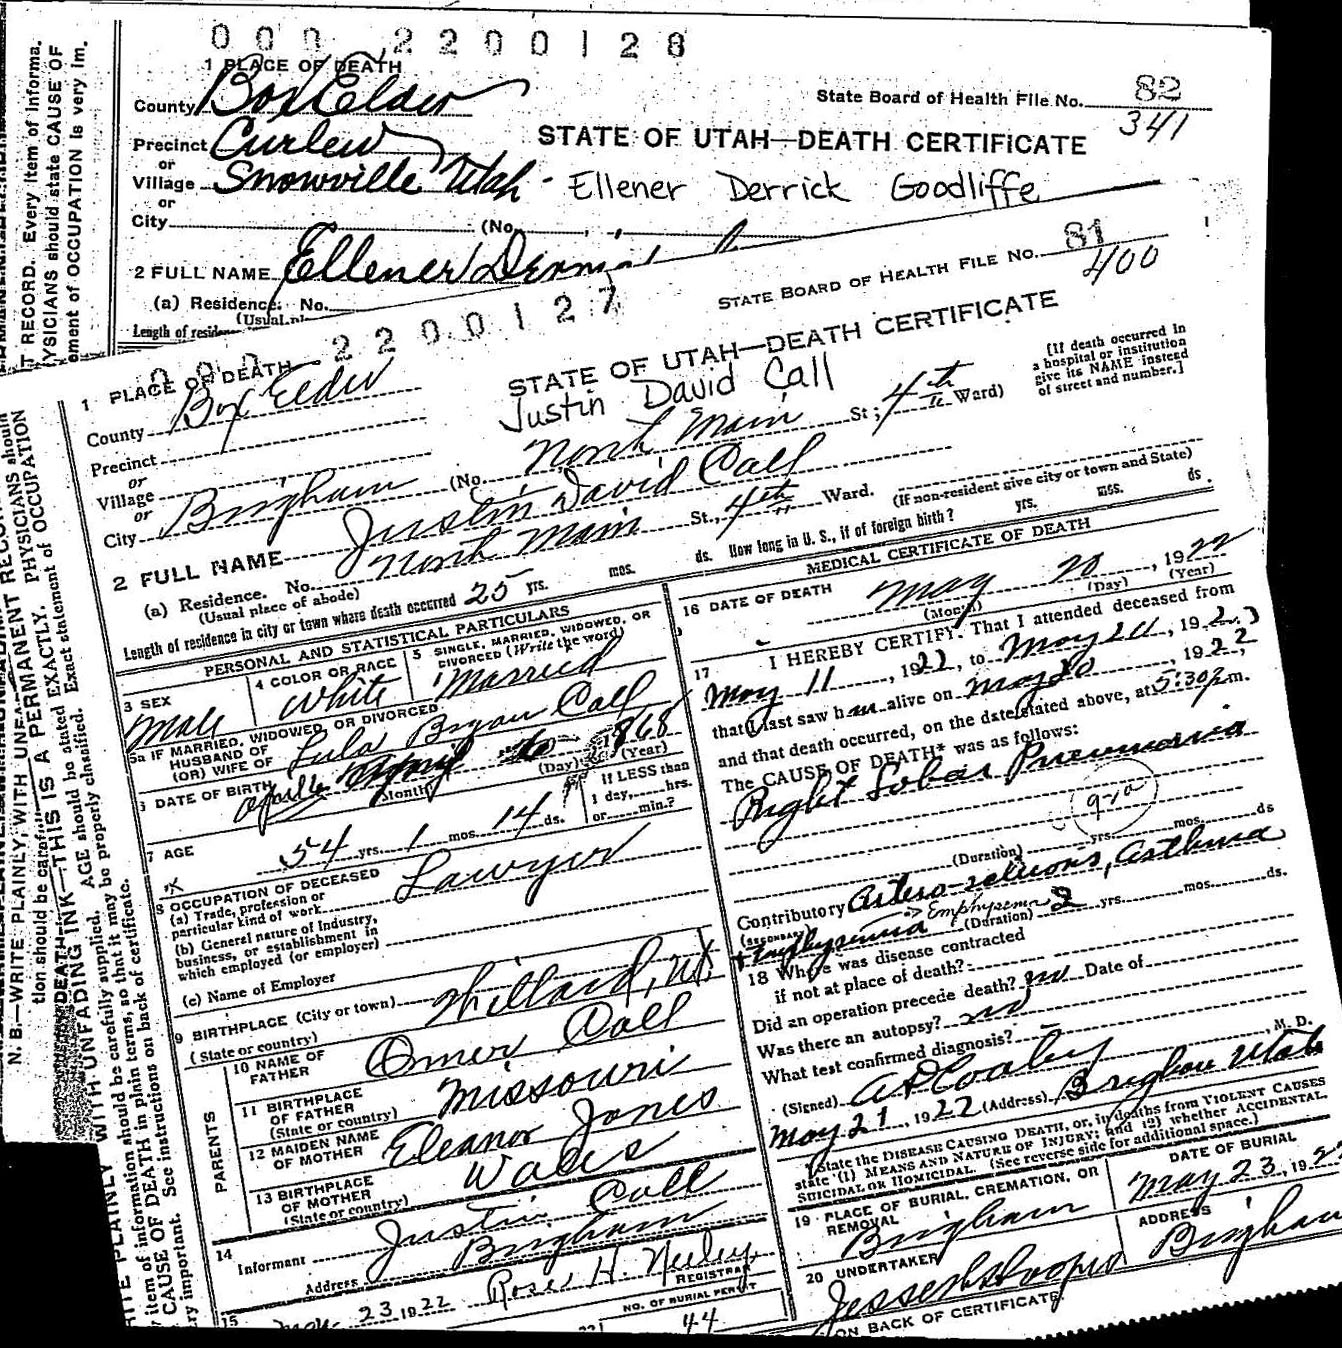 0 0 0 2 2 0 0 1 2 8
1 PLACE OF DEATH
County Box Elder
State Board of Health File No. 82
341
Precinct Curlew
STATE OF UTAH—DEATH CERTIFICATE
or
Village Snowville Utah - Ellener Derrick Goodliffe
or
City (No.
2 FULL NAME Ellener
(a) Residence. No.
(Usual
Length of
2 2 0 0 1 2 7
STATE BOARD OF HEALTH FILE NO. 81
400
1 PLACE OF DEATH
STATE OF UTAH—DEATH CERTIFICATE
County Box Elder
Justin David Call
[If death occurred in
a hospital or institution
give its NAME instead
of street and number.]
Precinct
or
Village
or
City Brigham (No. North Main St; 4th Ward)
2 FULL NAME Justin David Call
(a) Residence. No. North Main St., 4th Ward.
(Usual place of abode)
(If non-resident give city or town and State)
Length of residence in city or town where death occurred 25 yrs. mos. ds. How long in U. S., if of foreign birth? yrs. mos. ds.
PERSONAL AND STATISTICAL PARTICULARS
3 SEX
Male
4 COLOR OR RACE
White
5 SINGLE, MARRIED, WIDOWED, OR
DIVORCED (Write the word)
Married
5a IF MARRIED, WIDOWED, OR DIVORCED
HUSBAND OF
(OR) WIFE OF Lula Bryan Call
6 DATE OF BIRTH 1868
(Month) (Day) (Year)
7 AGE 54 yrs. 1 mos. 14 ds.
If LESS than
1 day, hrs.
or min.?
8 OCCUPATION OF DECEASED
(a) Trade, profession or
particular kind of work Lawyer
(b) General nature of Industry,
business, or establishment in
which employed (or employer)
(c) Name of Employer
9 BIRTHPLACE (City or town) Willard, Ut.
(State or country)
PARENTS
10 NAME OF
FATHER Omer Call
11 BIRTHPLACE
OF FATHER
(State or country) Missouri
12 MAIDEN NAME
OF MOTHER Eleanor Jones
13 BIRTHPLACE
OF MOTHER
(State or country) Wales
14
Informant Justin Call
Address Brigham
15
23 1922 Rose H. Neeley
REGISTRAR
NO. OF BURIAL PERMIT
44
MEDICAL CERTIFICATE OF DEATH
16 DATE OF DEATH May 20, 1922
(Month) (Day) (Year)
17 I HEREBY CERTIFY, That I attended deceased from
May 11, 1922, to May 20, 192
that I last saw him alive on May 20, 1922,
and that death occurred, on the date stated above, at 5:30 p.m.
The CAUSE OF DEATH* was as follows:
Right Lobar Pneumonia
(Duration) yrs. mos. ds
Contributory Arterio-sclerosis, Asthma
(SECONDARY)
+ Emphysema Emphysema (Duration) 2 yrs. mos. ds.
18 Where was disease contracted
if not at place of death?
Did an operation precede death? no Date of
Was there an autopsy? no
What test confirmed diagnosis?
(Signed) A D Cooley, M. D.
May 21, 1922 (Address) Brigham Utah
(State the DISEASE CAUSING DEATH, or, in deaths from VIOLENT CAUSES
state (1) MEANS AND NATURE OF INJURY; and (2) whether ACCIDENTAL,
SUICIDAL OR HOMICIDAL. (See reverse side for additional space.)
19 PLACE OF BURIAL, CREMATION, OR
REMOVAL
Brigham
DATE OF BURIAL
May 23, 192
20 UNDERTAKER
ADDRESS
ON BACK OF CERTIFICATE
N. B.—WRITE PLAINLY, WITH UNFADING INK—THIS IS A PERMANENT RECORD